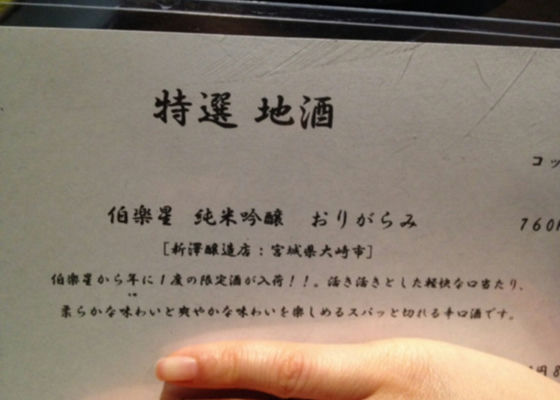 特選 地酒
コッ
伯楽星 純米吟醸 おりがらみ
760
[新澤醸造店:宮城県大崎市]
伯楽星から年に1度の限定酒が入荷!!。活き活きとした軽快な口当たり、
柔らかな味わいと爽やかな味わいを楽しめるスパッと切れる辛口酒です。
円8